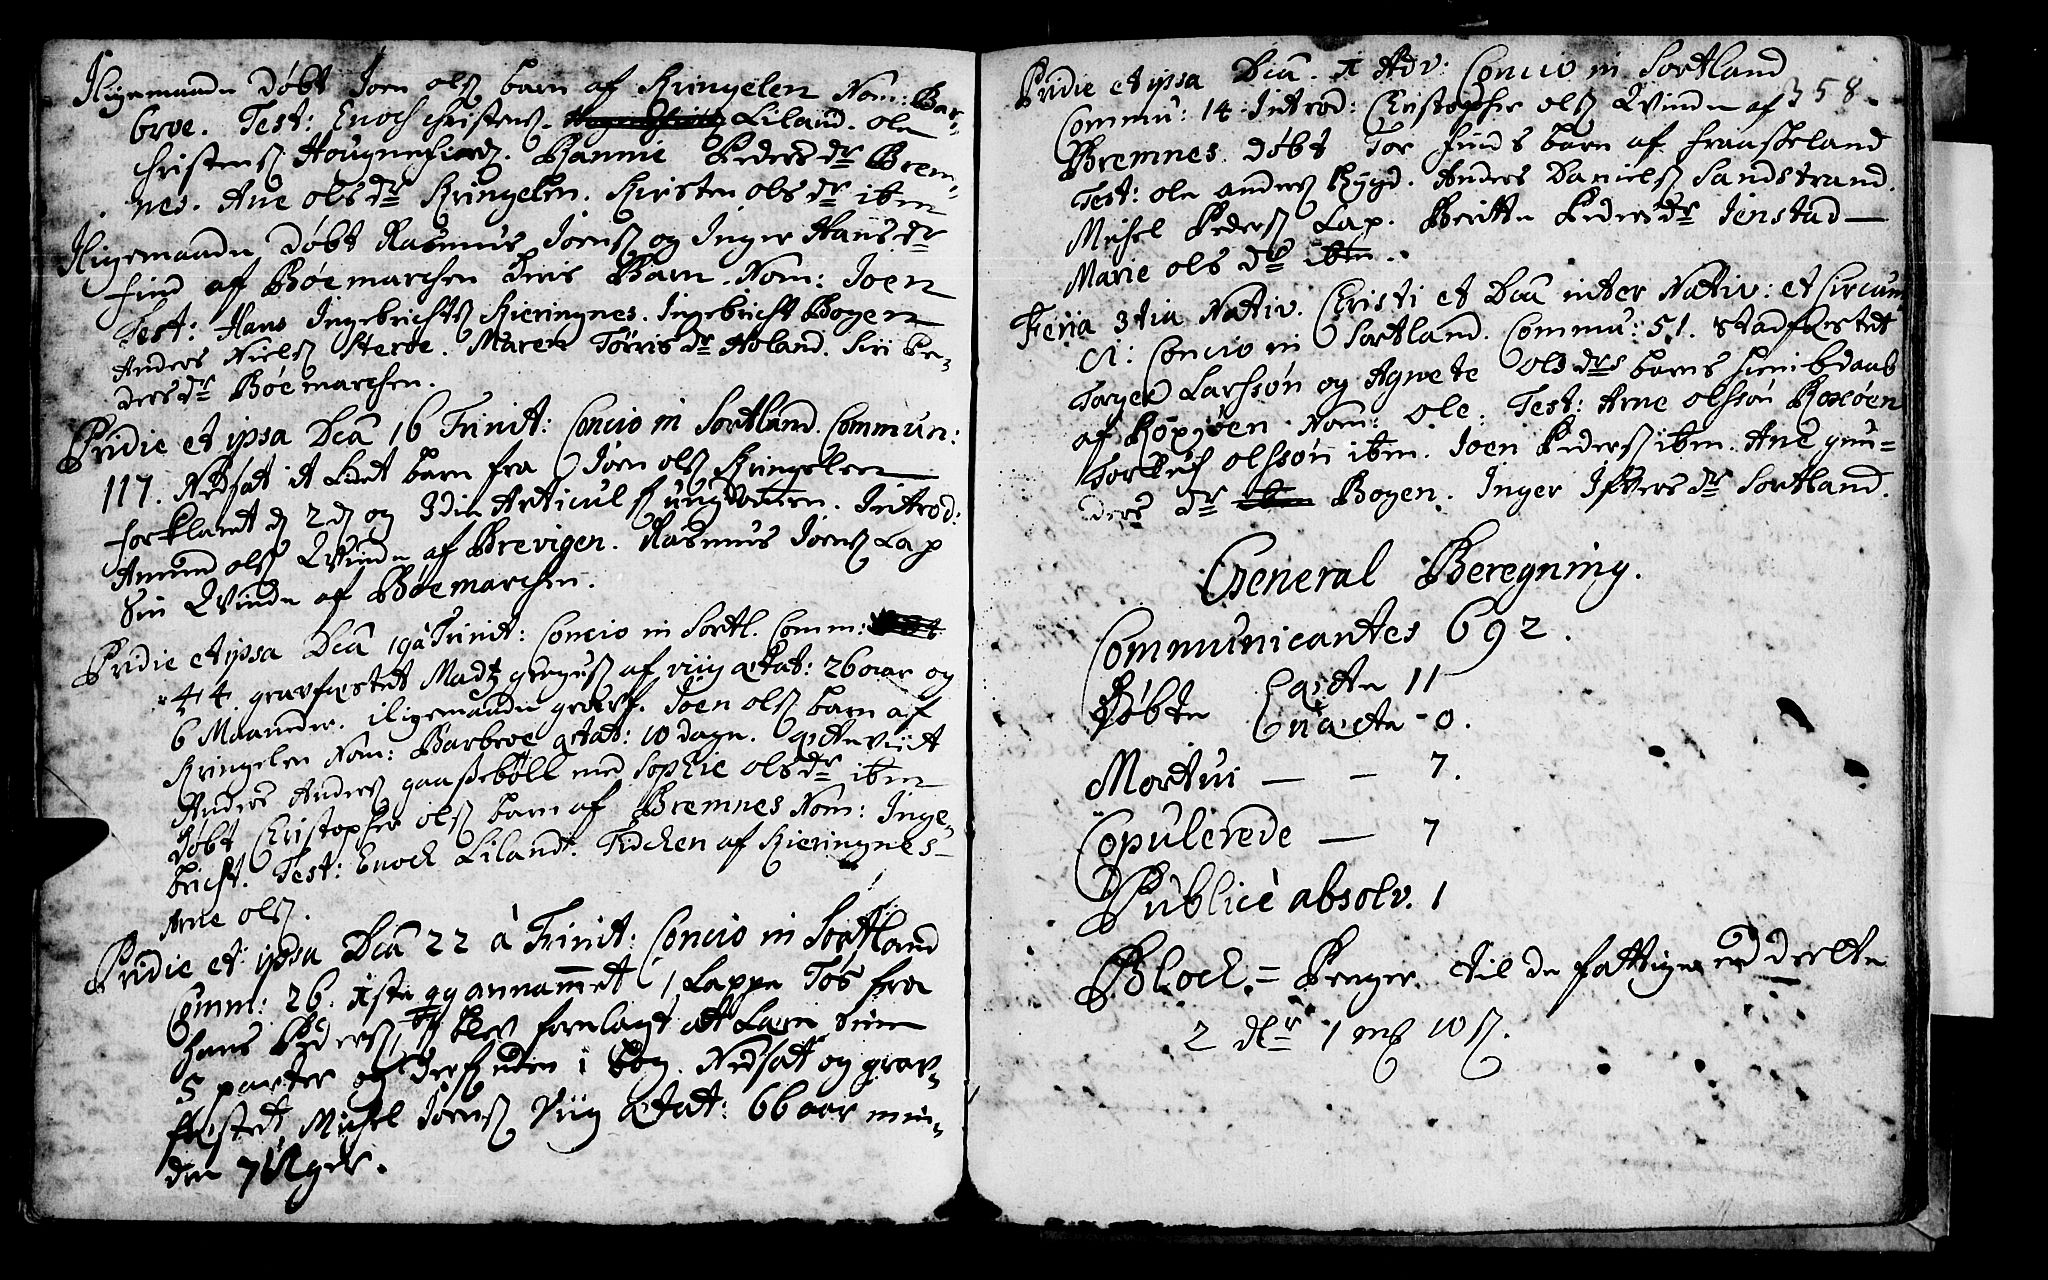 Iligemaade døbt Joen Olsⳅ barn af Kringelen Nom: Bar-
broe. Test: Enoch Christensⳅ. Liland. Ole
Christensⳅ Hougnefiord. Bannie Pedersdr Brem-
nes. Ane Olsdr Kringelen. Kirsten Olsdr ibm
Iligemaade døbt Rasmus Joensⳅ og Inger Hansdr
Find af Böemarchen deris Barn. Nom: Joen
Test: Hans Ingebrichtsⳅ Kieringnes. Ingebricht Bogen
Anders Nielsⳅ Steroe. Maren Törrisdr Holand. Siri Pe-
dersdr Böemarchen.
Pridie et ipsa Dcâ 16 Trinit: Concio in Sortland. Commun:
117. Nedsat it Lidet barn fra Joen Olsⳅ Kringelen
forklaret d 2d og 3die Articul f ungdommen. Introd:
Amund Olsⳅ Qvinde af Brevigen. Rasmus Joensⳅ Lap
Sin Qvinde af Böemarchen.
Pridie et ipsa Dcâ 19 à Trinit: Concio in Sortl. Comm:
44. gravfæstet Madtz af Viig ætat: 26 aar og
6 Maaneder. iligemaade gravf. Joen Olsⳅ barn af
Kringelen Nom: Barbroe ætat: 10 dage. ægteviet
Anders Andersⳅ gaassebøll med Sophie Olsdr ibm
Døbt Christopher Olsⳅ barn af Bremnes Nom: Inge-
bricht. Test: Enoch Liland. Tidchen af Kieringnes
Arne Olsⳅ.
Pridie et ipsa Dcâ 22 à Trinit: Concio in Sortland
Comm: 26. iste og annammet 1 Lappe Tøs fra
Hans Pedersⳅ, blef forelagt at Lære Sine
5 parter og derforuden i bog. Nedsat og grav-
fæstet Michel Joensⳅ Viig ætat: 66 aar min-
den 7 Uger.
Pridie et ipsa Dcâ. 1 Adv: Concio in Sortland
358.
Commu: 14. Introd: Christopher Olsⳅ Qvinde af
Bremnes. døbt Tor Finds barn af Fraaskeland
Test: Ole Andersⳅ Rygd. Anders Danielsⳅ Sandstrand.
Michel Pedersⳅ Lap. Beritte Pedersdr Jenstad
Marie Olsdr ibm.
Feria 3tia Nativ. Christi et Dcâ inter Nativ: et Circum
ci: Concio in Sortland. Commu: 51. Stadfæstet
Torger Larssøn og Agnete Olsdrs barns hiemedaab
af Roxøen. Nom: Ole. Test: Arne Olssøn Roxöen
Torkel Olssøn ibm. Joen Pedersⳅ ibm. Ane Gun-
ders dr Bogen. Inger Iffversdr Sortland.
General Beregning.
Communicantes 692.
Døbte Egte 11
Uægte - 0.
Mortui — — 7.
Copulerede — 7
Publicè absolv. 1
Block = Penger til de fattige uddeelte
2 dlr 1 mk 10 ß.